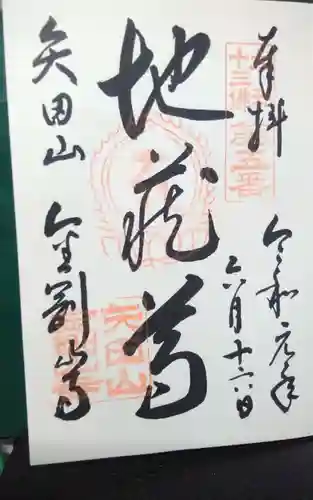 奉拝
十三佛第五番
令和元年
六月十六日
地蔵尊
矢田山
金剛山寺
矢田山